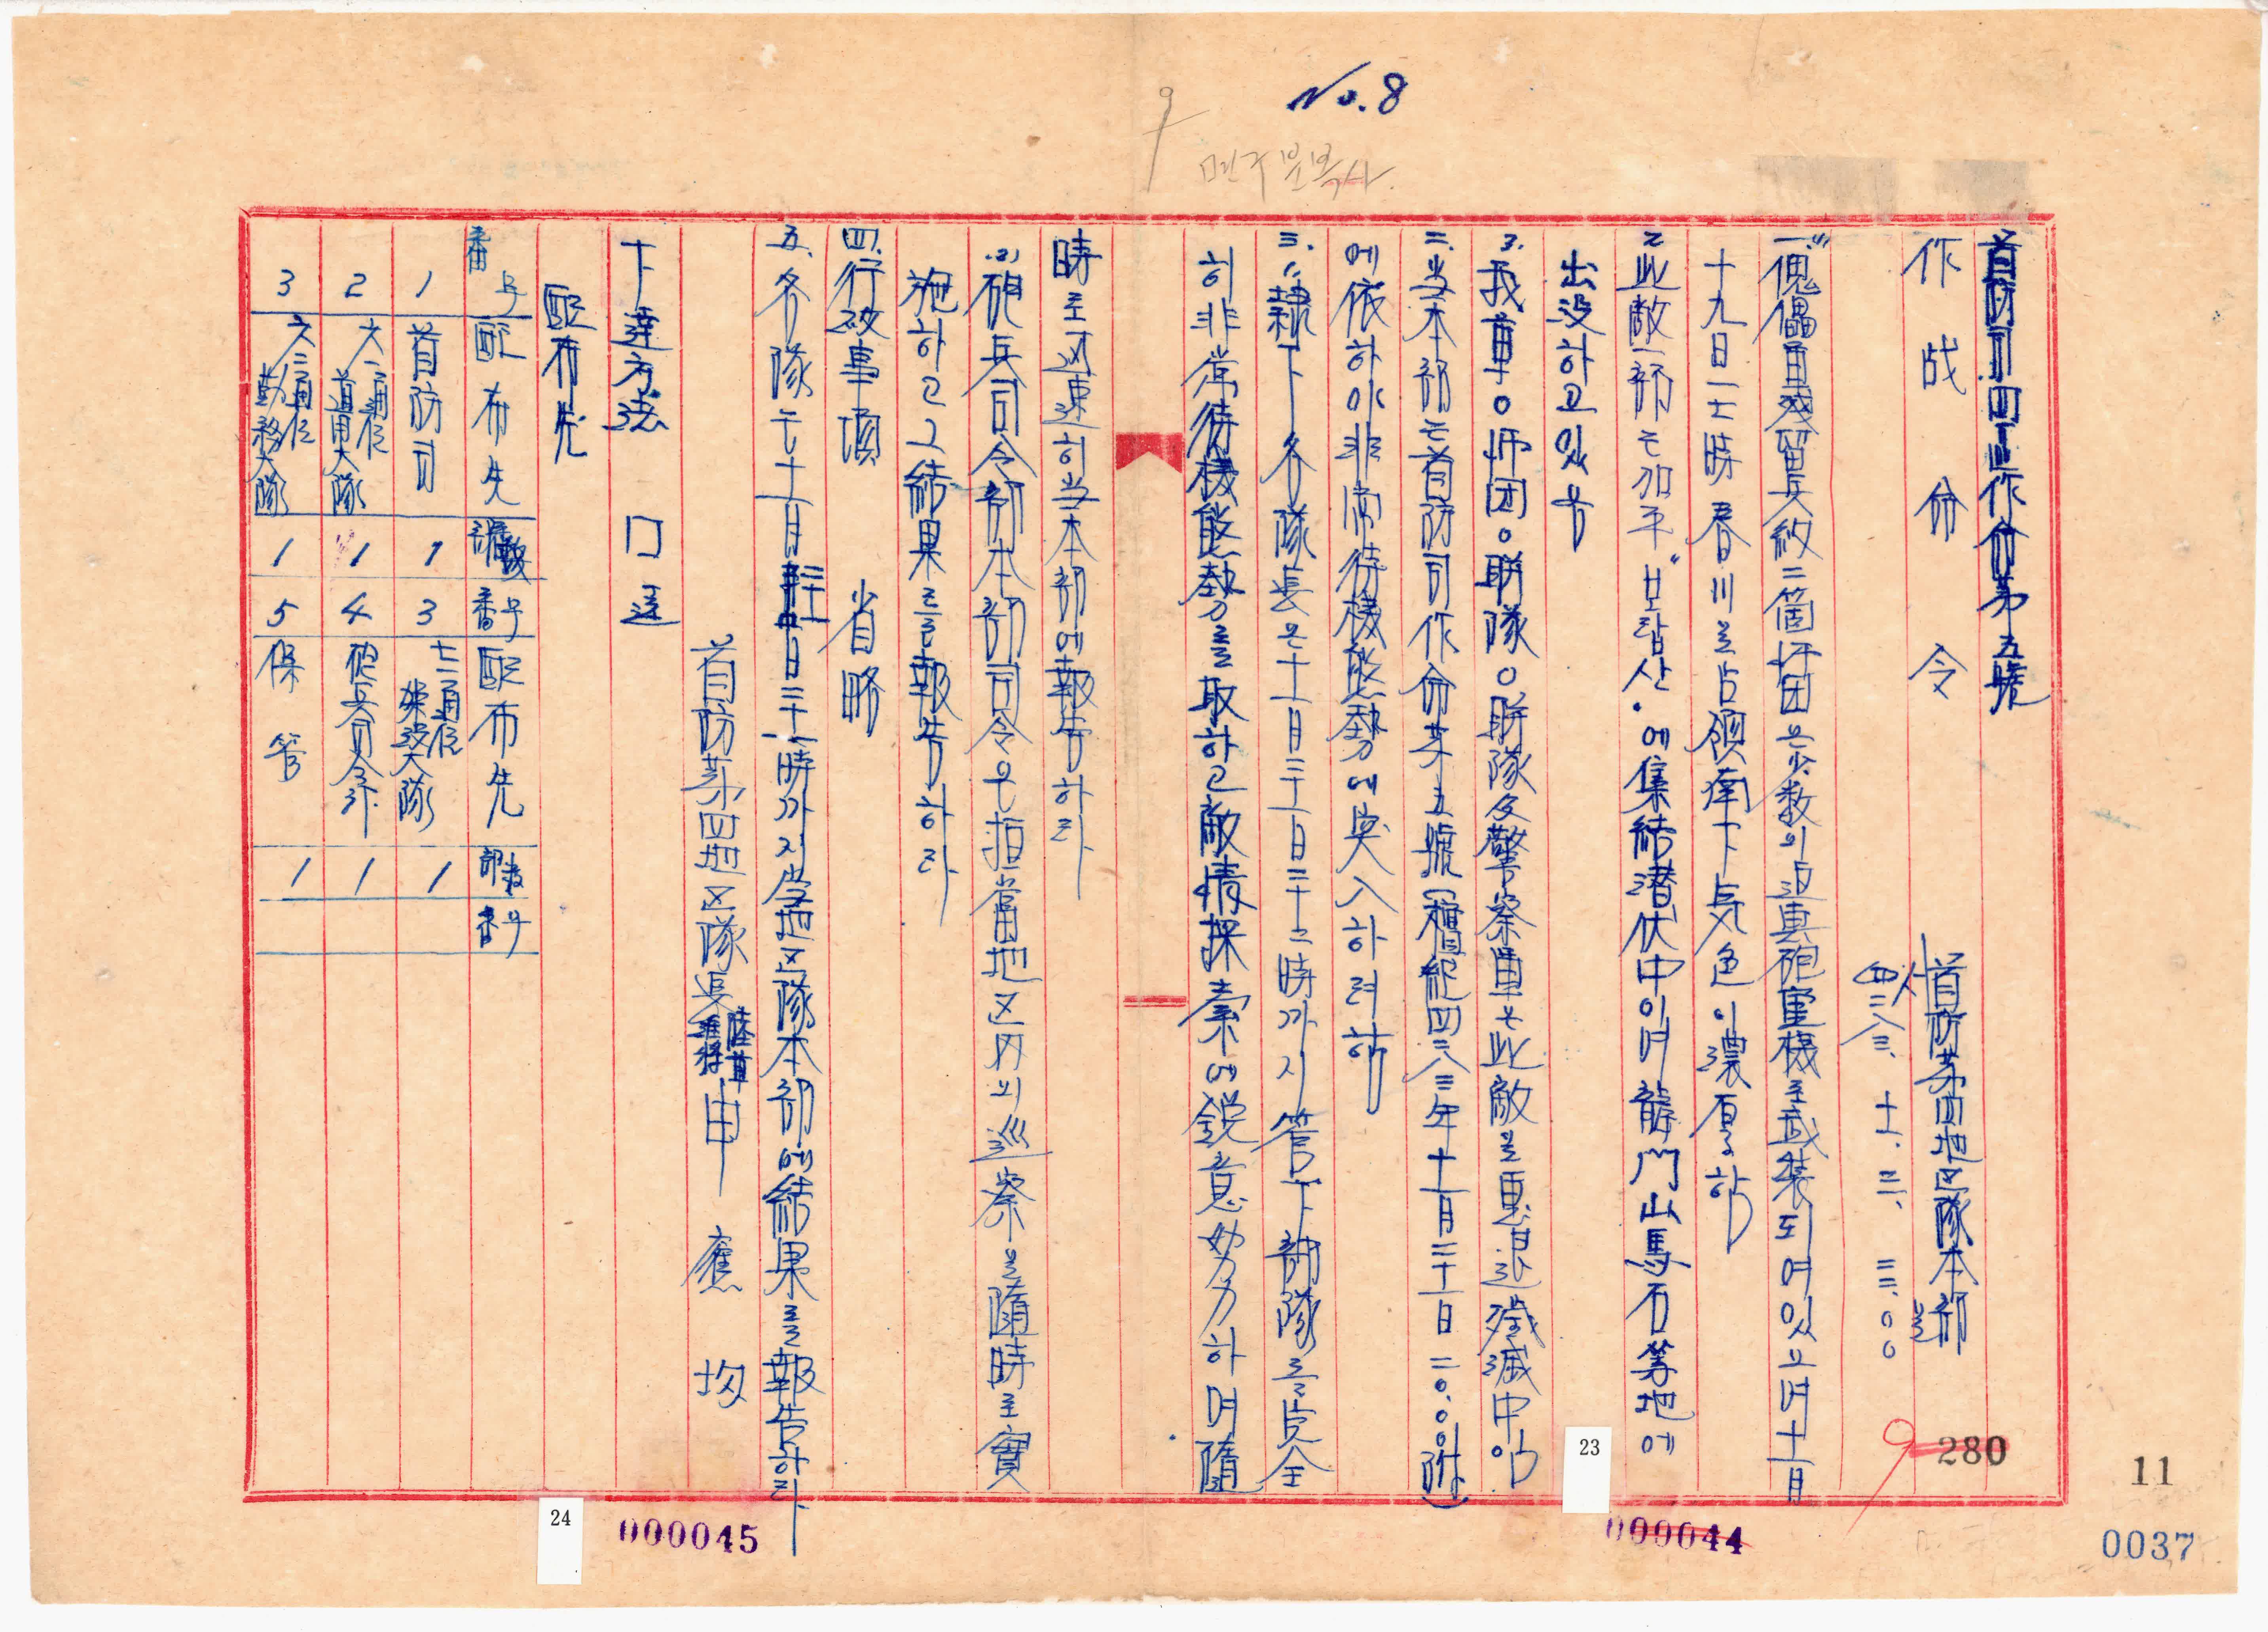 No. 8
9
민주 문복사.
首防司四區作命第五號
作戰命令
首防第四地区隊本部
四二八三、十一、三〇、二二.〇〇
一、1. 傀儡軍殘留兵約二箇師団은 少数의 迫真砲重機로 武裝되여있으며 十一月
十九日 一二時 春川을 占領 南下 気色이 濃厚함
2. 此敵一部는 加平 보랍산 에 集結 潜伏中이며 龍門山 馬石 等地에
出没하고 있음
3. 我軍 ○師団 ○聯隊 ○聯隊 及 警察軍은 此敵을 更退 殲滅中임
二、当本部는 首防司作命第五號 (檀紀四二八三年十一月三十日 二〇.〇〇附)
에 依하야 非常待機態勢에 突入하려함
三、(1) 隷下 各隊長은 十一月三十日 二十二時까지 管下 部隊를 完全
히 非常待機態勢를 取하고 敵情探索에 鋭意努力하며 隨
時로 迅速히 当本部에 報告하라
(2) 砲兵司令部本部司令은 担當地区内의 巡察을 隨時로 實
施하고 그 結果를 報告하라
四、行政事項 省略
五、各隊는 十一月三十日 二十二時까지 当地区隊本部에 結果를 報告하라
首防第四地区隊長 陸軍准将 申應均
下達方法 口達
配布先
番号 配布先 部数 番号 配布先 部数 番号
1 首防司 1 3 七一通信 建設大隊 1
2 六一通信 運用大隊 1 4 砲兵司令部 1
3 六二通信 勤務大隊 1 5 保管 1
280
9
11
0037
23
24
000044
000045